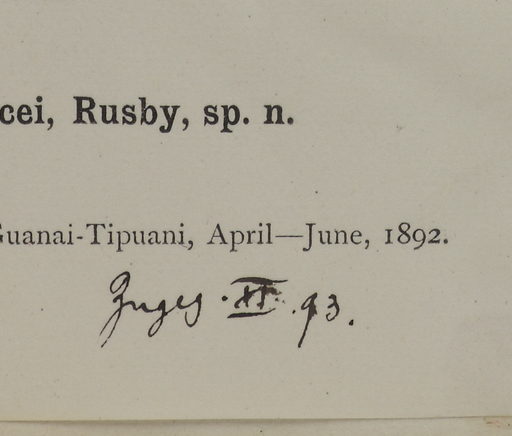 cei, Rusby, sp. n.
Guanai-Tipuani, April—June, 1892.
93.